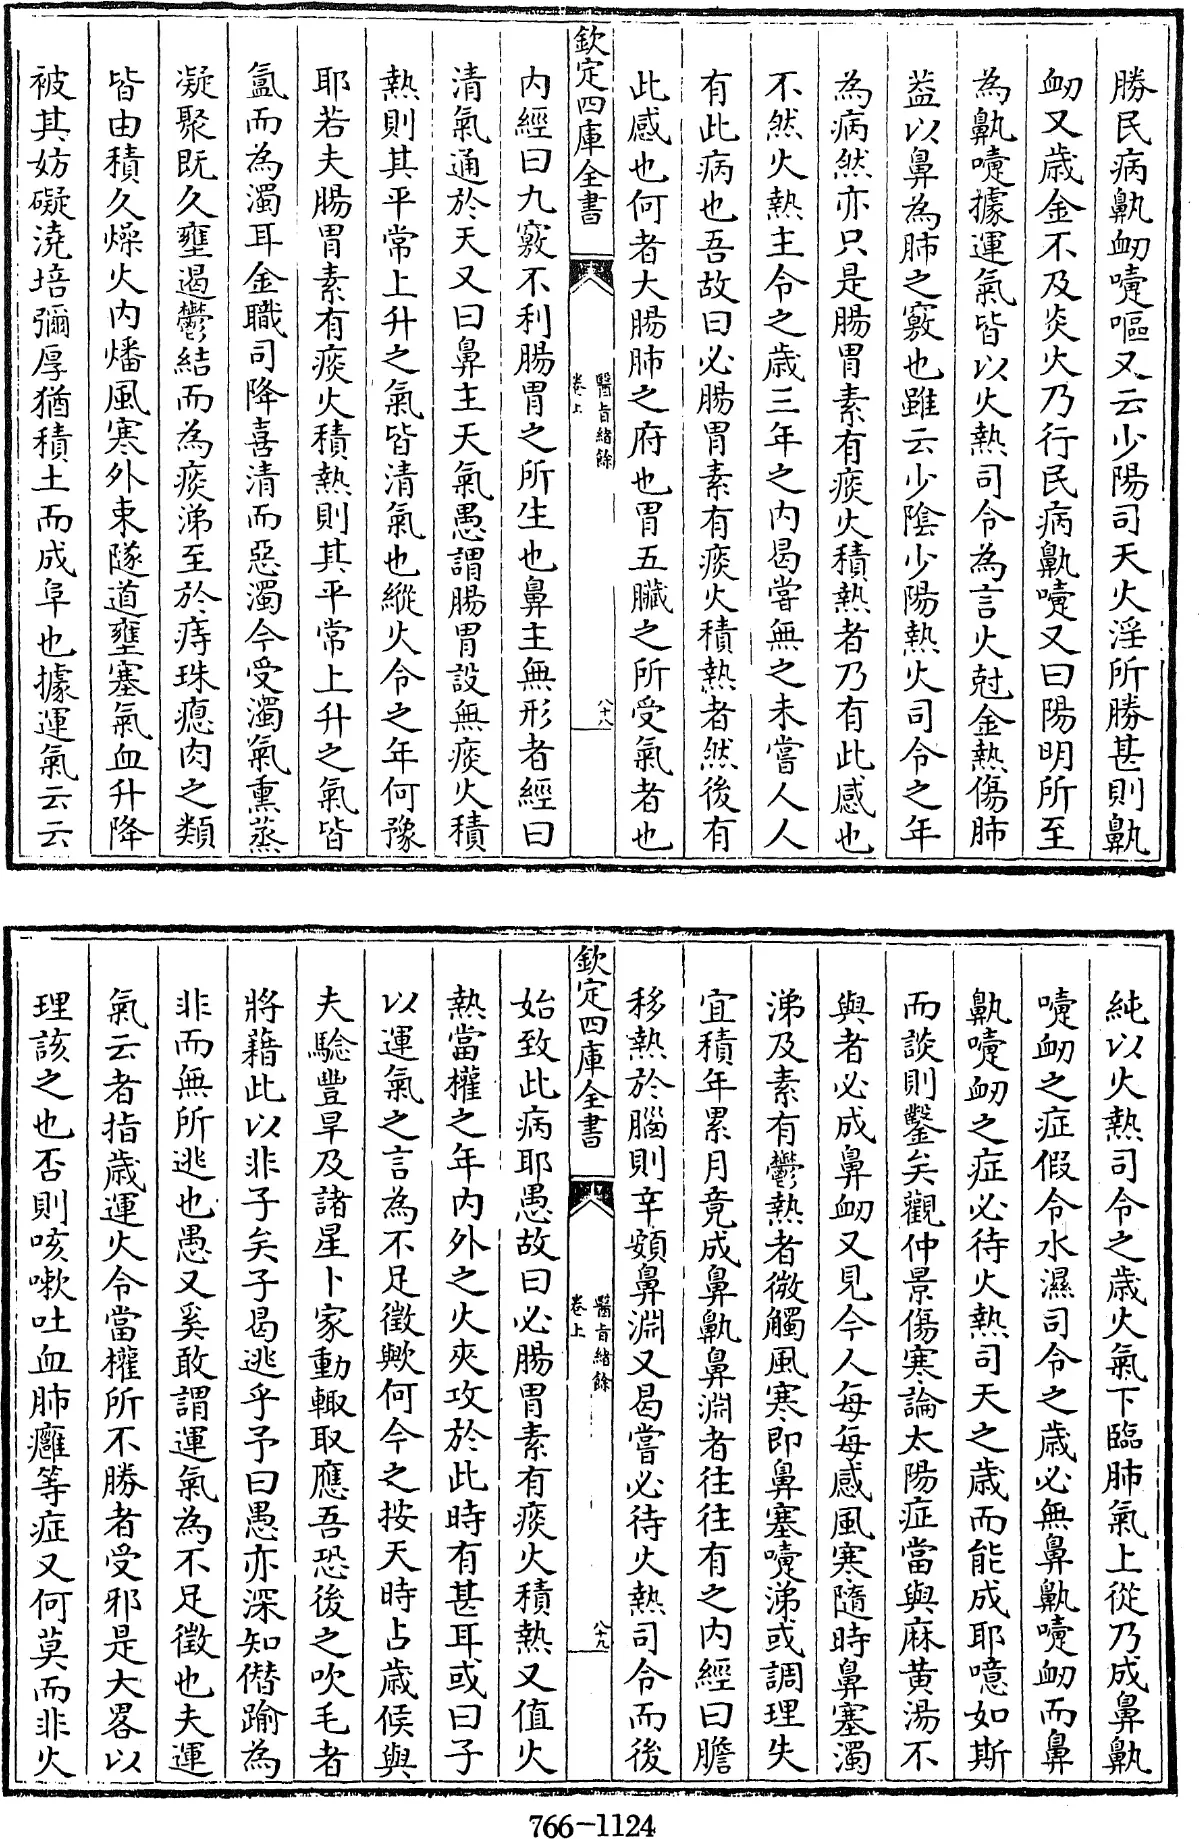 勝民病鼽衂嚏嘔又云少陽司天火淫所勝甚則鼽
衂又歲金不及炎火乃行民病鼽嚏又曰陽明所至
為鼽嚏據運氣皆以火熱司令為言火尅金熱傷肺
葢以鼻為肺之竅也雖云少陰少陽熱火司令之年
為病然亦只是腸胃素有痰火積熱者乃有此感也
不然火熱主令之歲三年之內曷嘗無之未嘗人人
有此病也吾故曰必腸胃素有痰火積熱者然後有
此感也何者大腸肺之府也胃五臟之所受氣者也
欽定四庫全書
醫旨緒餘
卷上
八十八
內經曰九竅不利腸胃之所生也鼻主無形者經曰
清氣通於天又曰鼻主天氣愚謂腸胃設無痰火積
熱則其平常上升之氣皆清氣也縱火令之年何豫
耶若夫腸胃素有痰火積熱則其平常上升之氣皆
氲而為濁耳金職司降喜清而惡濁今受濁氣熏蒸
凝聚既久壅遏鬱結而為痰涕至於痔珠瘜肉之類
皆由積久燥火內燔風寒外束隧道壅塞氣血升降
被其妨礙澆培彌厚猶積土而成阜也據運氣云云
純以火熱司令之歲火氣下臨肺氣上從乃成鼻鼽
嚏衂之症假令水濕司令之歲必無鼻鼽嚏衂而鼻
鼽嚏衂之症必待火熱司天之歲而能成耶噫如斯
而談則鑿矣觀仲景傷寒論太陽症當與麻黃湯不
與者必成鼻衂又見今人每每感風寒隨時鼻塞濁
涕及素有鬱熱者微觸風寒即鼻塞嚏涕或調理失
宜積年累月竟成鼻鼽鼻淵者往往有之內經曰膽
移熱於腦則辛頞鼻淵又曷嘗必待火熱司令而後
欽定四庫全書
醫旨緒餘
卷上
八十九
始致此病耶愚故曰必腸胃素有痰火積熱又值火
熱當權之年內外之火夾攻於此時有甚耳或曰子
以運氣之言為不足徵歟何今之按天時占歲候與
夫驗豐旱及諸星卜家動輙取應吾恐後之吹毛者
將藉此以非子矣子曷逃乎予曰愚亦深知僭踰為
非而無所逃也愚又奚敢謂運氣為不足徵也夫運
氣云者指歲運火令當權所不勝者受邪是大畧以
理該之也否則咳嗽吐血肺癰等症又何莫而非火
766-1124